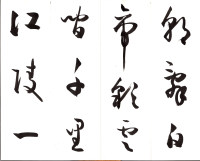 朝辭白
帝彩云
間千里
江陵一